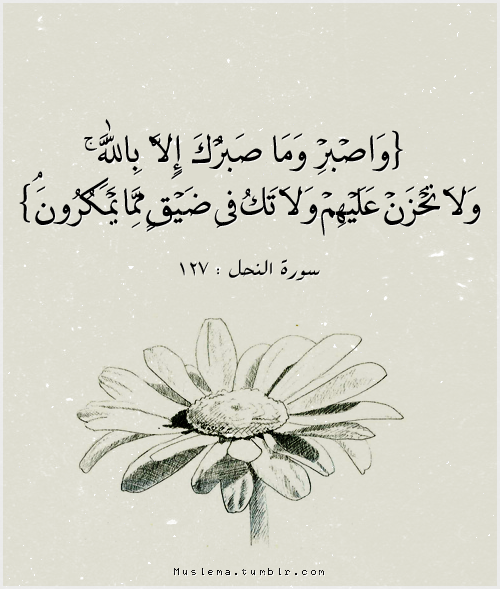 {وَاصْبِرْ وَمَا صَبْرُكَ إِلَّا بِاللَّهِ ۚ
وَلَا تَحْزَنْ عَلَيْهِمْ وَلَا تَكُ فِي ضَيْقٍ مِّمَّا يَمْكُرُونَ}
سورة النحل : ١٢٧
Muslema.tumblr.com